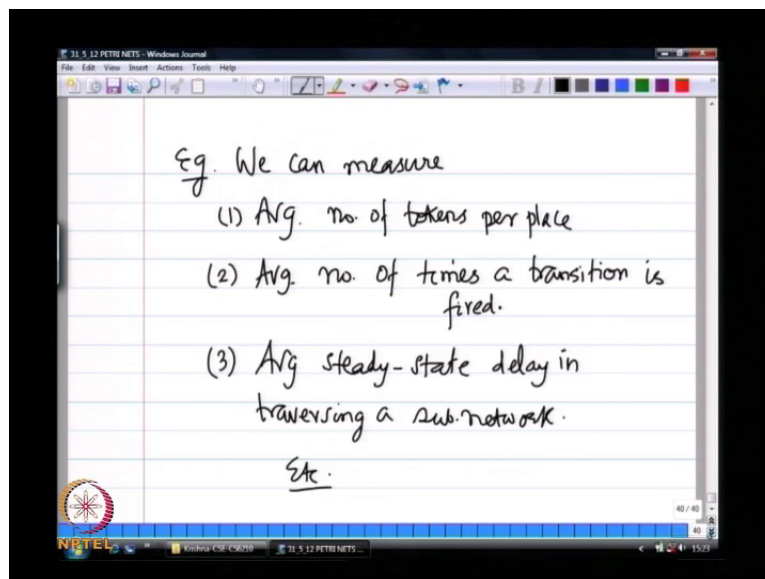 31_5_12 PETRI NETS - Windows Journal
File Edit View Insert Actions Tools Help
B I
Eg. We can measure
(1) Avg. no. of tokens per place
(2) Avg. no. of times a transition is
fired.
(3) Avg steady-state delay in
traversing a sub.network.
Etc.
40 / 40
40
NPTEL
Krishna-CSE-CS6210
31_5_12 PETRI NETS ...
15:23